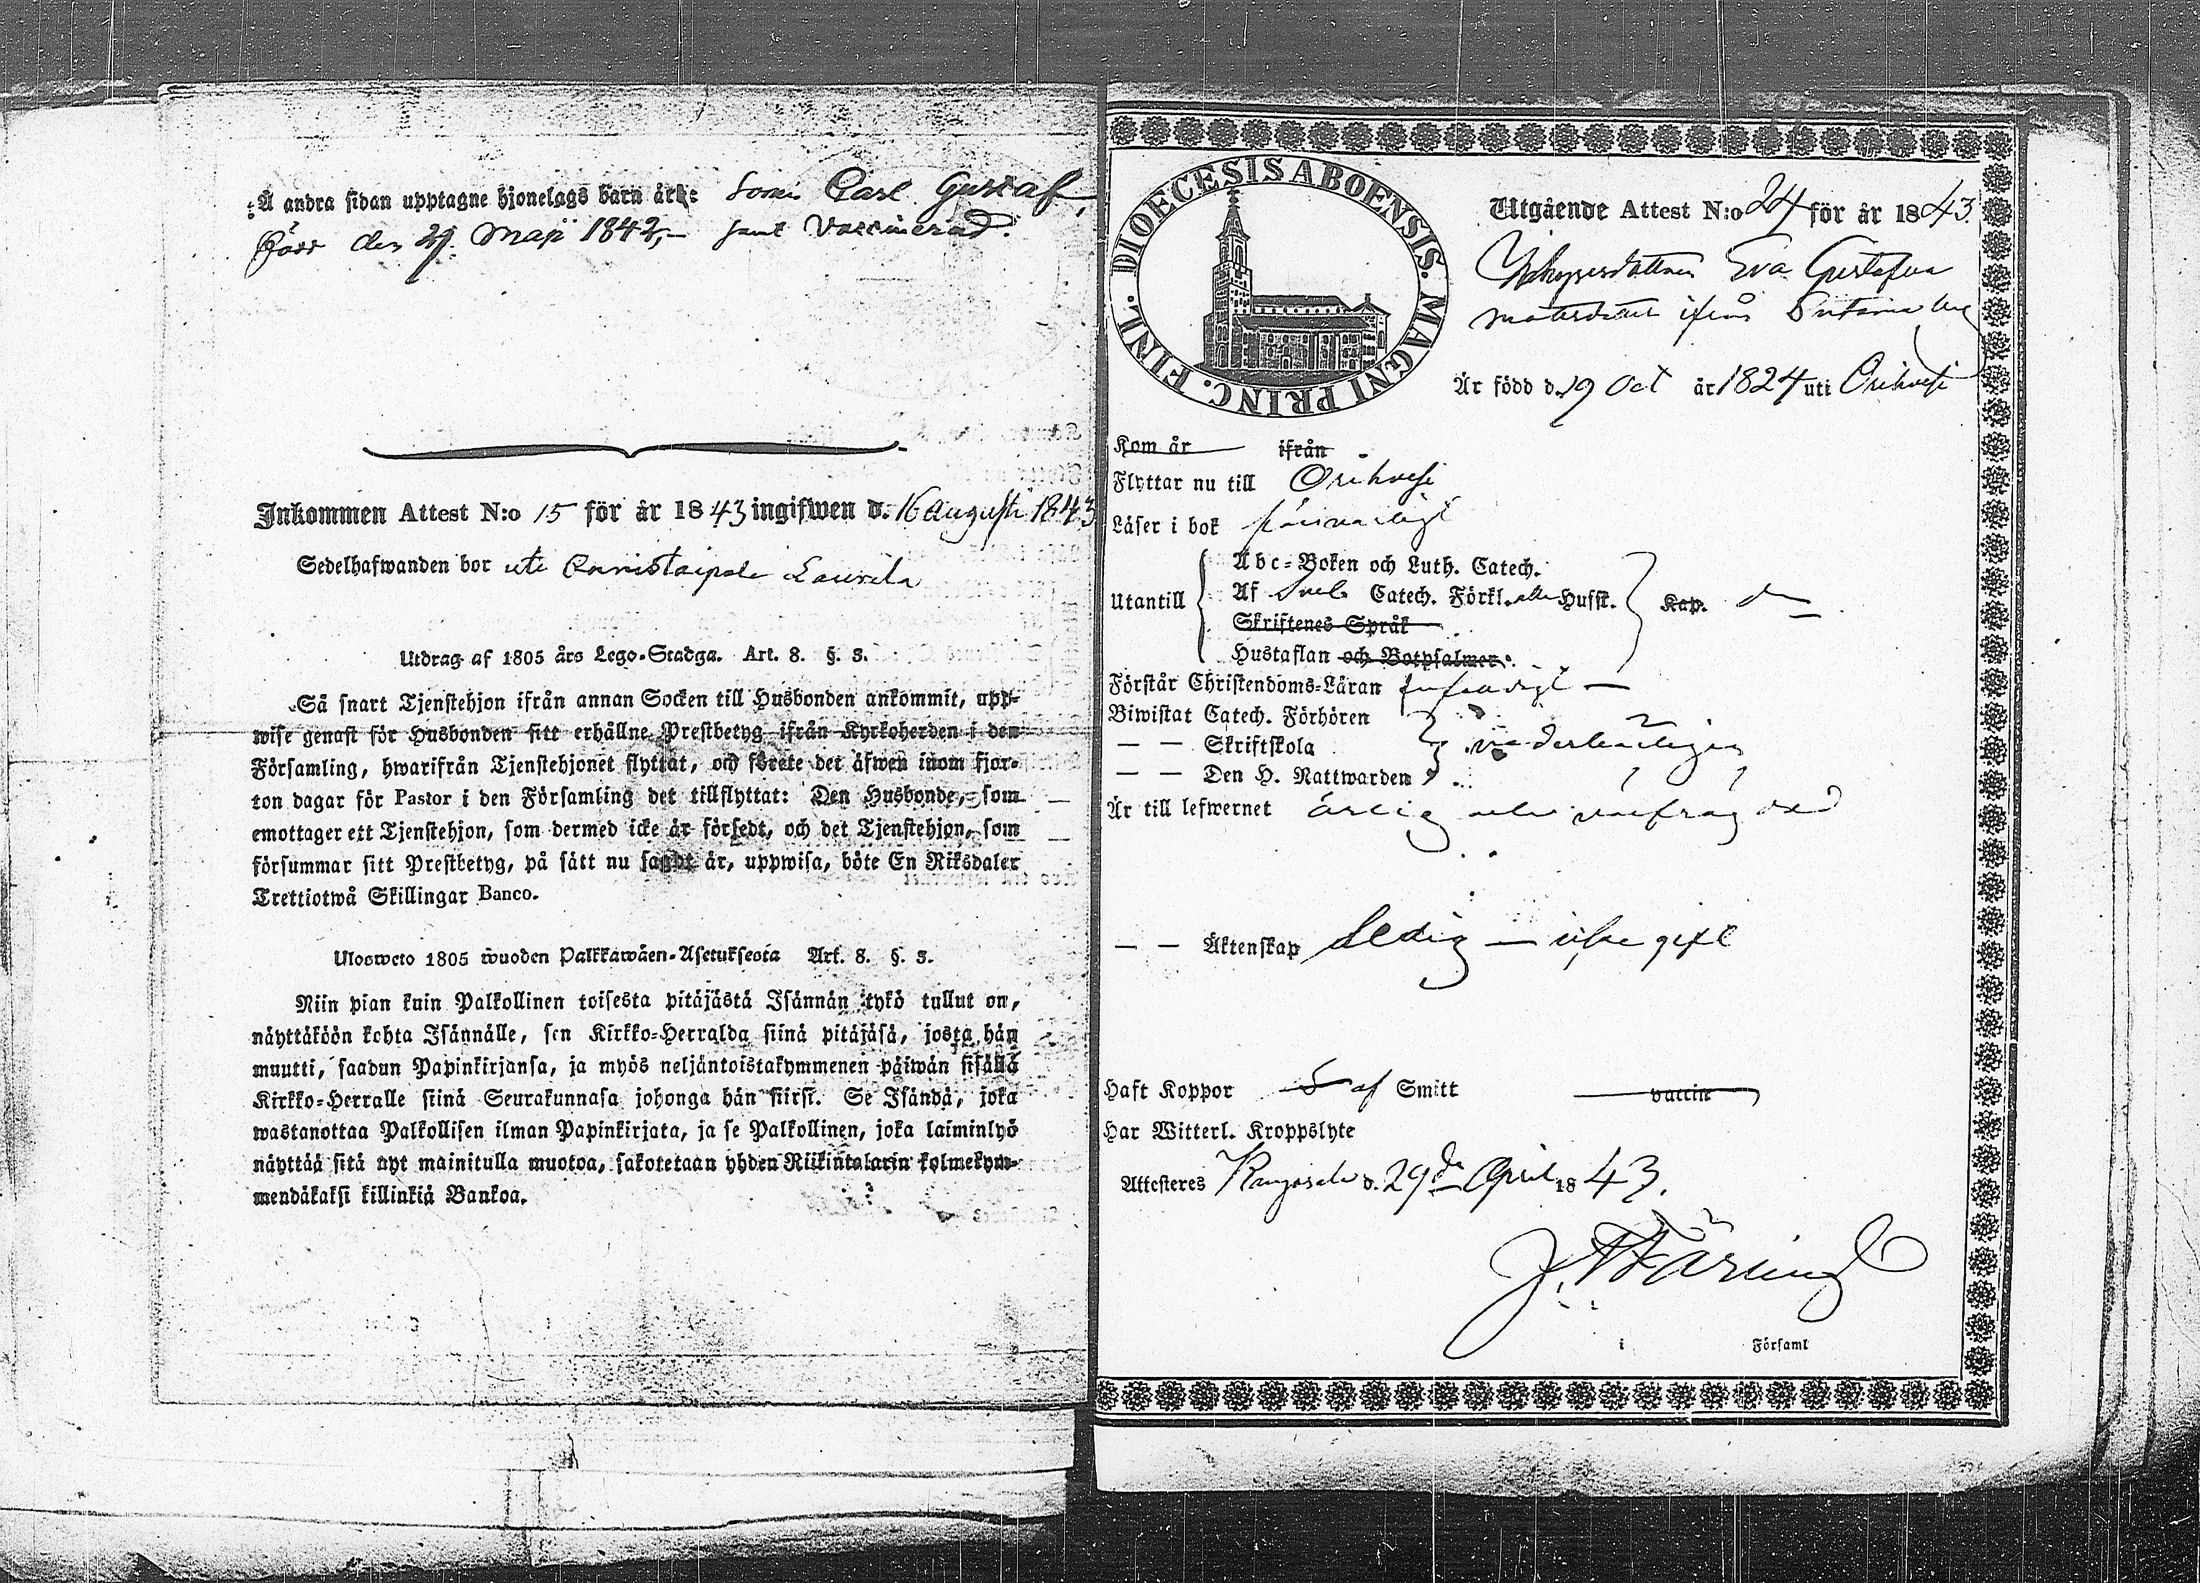 Å andra sidan upptagne hjonelags barn är: Sonen Carl Gustaf,
född den 29. Maji 1842, – samt Vaccinerad.
Inkommen Attest N:o 15 för år 1843 ingifwen d. 16 Augusti 1843
Sedelhafwanden bor uti Laurila
Utdrag af 1805 års Lego-Stadga. Art. 8. §. 3.
Så snart Tjenstehjon ifrån annan Socken till Husbonden ankommit, upp-
wise genast för Husbonden sitt erhållne Prestbetyg ifrån Kyrkoherden i den
Församling, hwarifrån Tjenstehjonet flyttat, och förete det äfwen inom fjor-
ton dagar för Pastor i den Församling det tillflyttat: Den Husbonde, som
emottager ett Tjenstehjon, som dermed icke är försedt, och det Tjenstehjon, som
försummar sitt Prestbetyg, på sätt nu sagdt är, uppwisa, böte En Riksdaler
Trettiotwå Skillingar Banco.
Ulosweto 1805 wuoden Palkkawäen-Asetuksesta Art. 8. §. 3.
Niin pian kuin Palkollinen toisesta pitäjästä Isännän tykö tullut on,
näyttäköön kohta Isännälle, sen Kirkko-Herralda siinä pitäjäsä, josta hän
muutti, saadun Papinkirjansa, ja myös neljäntoistakymmenen päiwän sisällä
Kirkko-Herralle siinä Seurakunnasa johonga hän siirsi. Se Isändä, joka
wastanottaa Palkollisen ilman Papinkirjata, ja se Palkollinen, joka laiminlyö
näyttää sitä nyt mainitulla muotoa, sakotetaan yhden Riikintalarin kolmekym-
mendäkaksi killinkiä Bankoa.
DIOECESIS ABOENSIS. MAGNI PRINC. FINL.
Utgående Attest N:o 24 för år 1843.
Eva Gustafva
ifrån
Är född d. 19 Oct år 1824 uti Orihvesi
Kom år ifrån
Flyttar nu till Orihvesi
Läser i bok försvarligt
Utantill
Abc-Boken och Luth. Catech.
Af Sveb. Catech. Förkl. Husst. Kap.
Skriftenes Språk
Hustaflan och Botpsalmer.
Förstår Christendoms-Läran
Biwistat Catech. Förhören
— — Skriftskola
— — Den H. Nattwarden
vederbörligen
Är till lefwernet ärlig och oberyktad
— — Äktenskap Ledig – icke gift
Haft Koppor af Smitt vaccin
Har Witterl. Kroppslyte
Attesteres Kangasala d. 29de April 1843.
i Församl